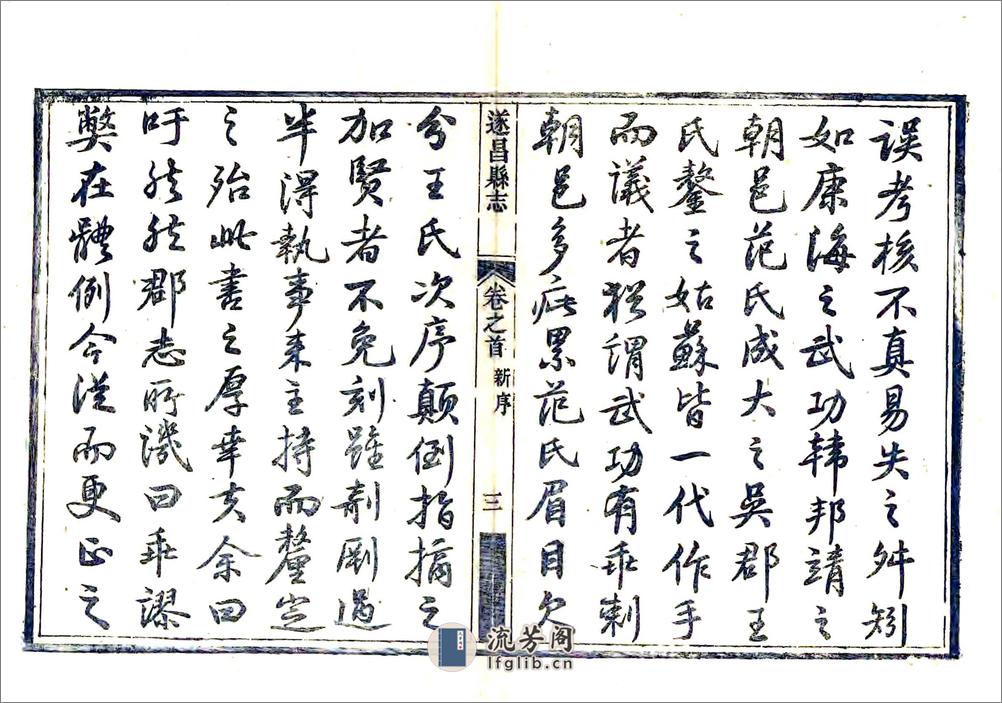 誤考核不真易失之舛矧
如康海之武功韓邦靖之
朝邑范氏成大之吳郡王
氏鏊之姑蘇皆一代作手
而議者猶謂武功有乖剌
朝邑多疵累范氏眉目欠
遂昌縣志
卷之首
新序
三
分王氏次序顛倒指摘之
加賢者不免刻雖剞劂過
半得執事来主持而釐定
之殆此書之厚幸夫余曰
吁然然郡志所譏曰乖謬
弊在體例今從而更正之
流芳阁
lfglib.cn